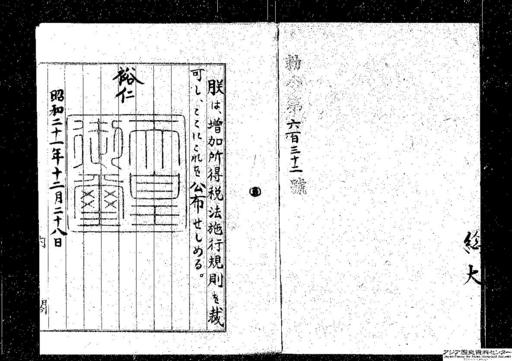 総
大
勅令第六百三十二號
朕は増加所得税法施行規則を裁
可し、ここにこれを公布せしめる。
裕仁
天皇
御璽
昭和二十一年十二月二十八日
内閣
アジア歴史資料センター